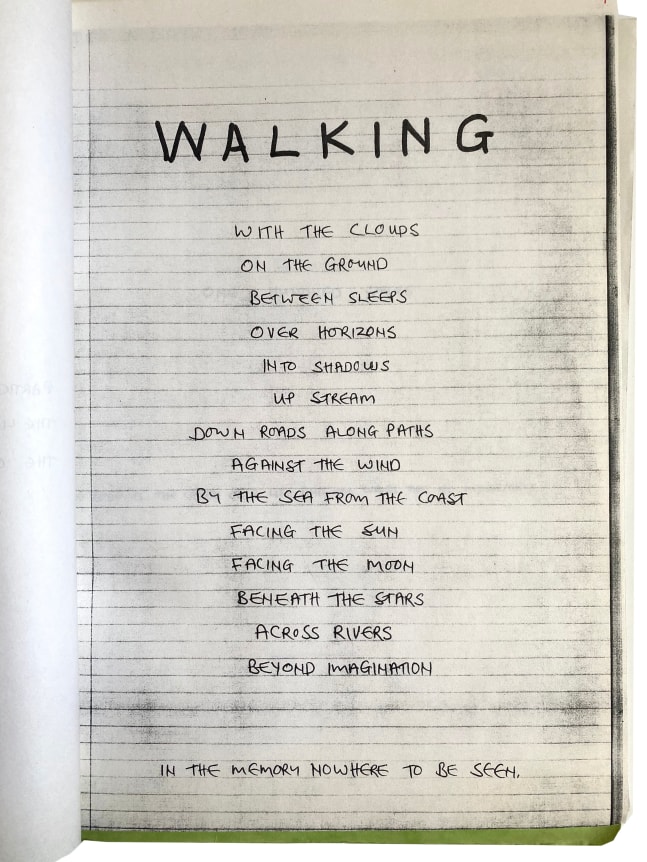 WALKING
WITH THE CLOUDS
ON THE GROUND
BETWEEN SLEEPS
OVER HORIZONS
INTO SHADOWS
UP STREAM
DOWN ROADS ALONG PATHS
AGAINST THE WIND
BY THE SEA FROM THE COAST
FACING THE SUN
FACING THE MOON
BENEATH THE STARS
ACROSS RIVERS
BEYOND IMAGINATION
IN THE MEMORY NOWHERE TO BE SEEN.